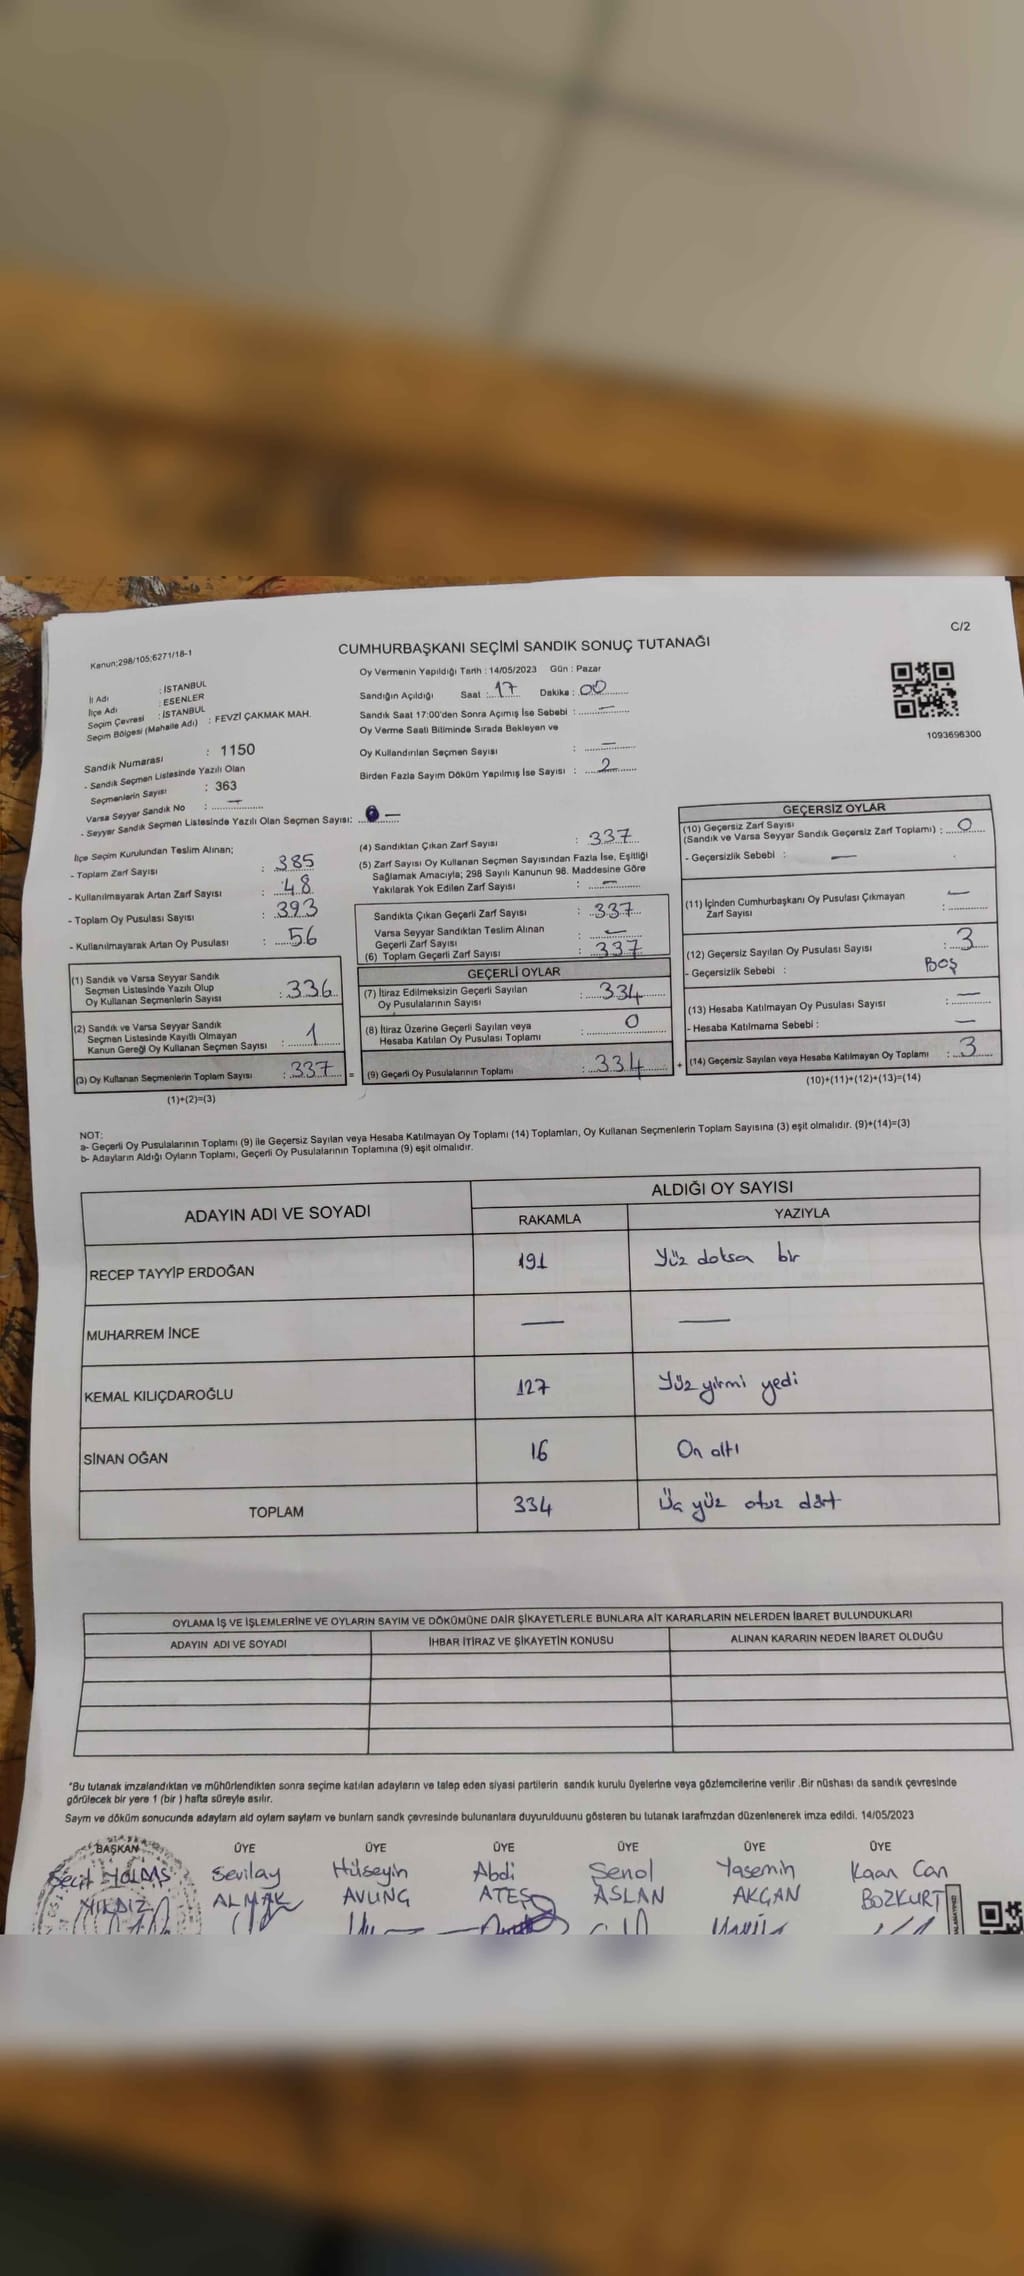 C/2
Kanun;298/105;6271/18-1
CUMHURBAŞKANI SEÇİMİ SANDIK SONUÇ TUTANAĞI
1093696300
İl Adı : İSTANBUL
İlçe Adı : ESENLER
Seçim Çevresi : İSTANBUL
Seçim Bölgesi (Mahalle Adı) : FEVZİ ÇAKMAK MAH.
Sandık Numarası : 1150
- Sandık Seçmen Listesinde Yazılı Olan
Seçmenlerin Sayısı : 363
Varsa Seyyar Sandık No : —
- Seyyar Sandık Seçmen Listesinde Yazılı Olan Seçmen Sayısı: —
Oy Vermenin Yapıldığı Tarih : 14/05/2023 Gün : Pazar
Sandığın Açıldığı Saat : 17 Dakika : 00
Sandık Saat 17:00'den Sonra Açımış İse Sebebi : —
Oy Verme Saati Bitiminde Sırada Bekleyen ve
Oy Kullandırılan Seçmen Sayısı : —
Birden Fazla Sayım Döküm Yapılmış İse Sayısı : 2
İlçe Seçim Kurulundan Teslim Alınan;
- Toplam Zarf Sayısı : 385
- Kullanılmayarak Artan Zarf Sayısı : 48
- Toplam Oy Pusulası Sayısı : 393
- Kullanılmayarak Artan Oy Pusulası : 56
(1) Sandık ve Varsa Seyyar Sandık
Seçmen Listesinde Yazılı Olup
Oy Kullanan Seçmenlerin Sayısı : 336
(2) Sandık ve Varsa Seyyar Sandık
Seçmen Listesinde Kayıtlı Olmayan
Kanun Gereği Oy Kullanan Seçmen Sayısı : 1
(3) Oy Kullanan Seçmenlerin Toplam Sayısı : 337 =
(1)+(2)=(3)
(4) Sandıktan Çıkan Zarf Sayısı : 337
(5) Zarf Sayısı Oy Kullanan Seçmen Sayısından Fazla İse, Eşitliği
Sağlamak Amacıyla; 298 Sayılı Kanunun 98. Maddesine Göre
Yakılarak Yok Edilen Zarf Sayısı : —
Sandıkta Çıkan Geçerli Zarf Sayısı : 337
Varsa Seyyar Sandıktan Teslim Alınan
Geçerli Zarf Sayısı : —
(6) Toplam Geçerli Zarf Sayısı : 337
GEÇERLİ OYLAR
(7) İtiraz Edilmeksizin Geçerli Sayılan
Oy Pusulalarının Sayısı : 334
(8) İtiraz Üzerine Geçerli Sayılan veya
Hesaba Katılan Oy Pusulası Toplamı : 0
(9) Geçerli Oy Pusulalarının Toplamı : 334 +
GEÇERSİZ OYLAR
(10) Geçersiz Zarf Sayısı
(Sandık ve Varsa Seyyar Sandık Geçersiz Zarf Toplamı) : 0
- Geçersizlik Sebebi : —
(11) İçinden Cumhurbaşkanı Oy Pusulası Çıkmayan
Zarf Sayısı : —
(12) Geçersiz Sayılan Oy Pusulası Sayısı : 3
- Geçersizlik Sebebi : BOŞ
(13) Hesaba Katılmayan Oy Pusulası Sayısı : —
- Hesaba Katılmama Sebebi : —
(14) Geçersiz Sayılan veya Hesaba Katılmayan Oy Toplamı : 3
(10)+(11)+(12)+(13)=(14)
NOT:
a- Geçerli Oy Pusulalarının Toplamı (9) ile Geçersiz Sayılan veya Hesaba Katılmayan Oy Toplamı (14) Toplamları, Oy Kullanan Seçmenlerin Toplam Sayısına (3) eşit olmalıdır. (9)+(14)=(3)
b- Adayların Aldığı Oyların Toplamı, Geçerli Oy Pusulalarının Toplamına (9) eşit olmalıdır.
ADAYIN ADI VE SOYADI ALDIĞI OY SAYISI
RAKAMLA YAZIYLA
RECEP TAYYİP ERDOĞAN 191 Yüz doksa bir
MUHARREM İNCE — —
KEMAL KILIÇDAROĞLU 127 Yüz yirmi yedi
SİNAN OĞAN 16 On altı
TOPLAM 334 Üç yüz otuz dört
OYLAMA İŞ VE İŞLEMLERİNE VE OYLARIN SAYIM VE DÖKÜMÜNE DAİR ŞİKAYETLERLE BUNLARA AİT KARARLARIN NELERDEN İBARET BULUNDUKLARI
ADAYIN ADI VE SOYADI İHBAR İTİRAZ VE ŞİKAYETİN KONUSU ALINAN KARARIN NEDEN İBARET OLDUĞU
*Bu tutanak imzalandıktan ve mühürlendikten sonra seçime katılan adayların ve talep eden siyasi partilerin sandık kurulu üyelerine veya gözlemcilerine verilir .Bir nüshası da sandık çevresinde
görülecek bir yere 1 (bir ) hafta süreyle asılır.
Sayım ve döküm sonucunda adaylarn ald oylarn saylarn ve bunlarn sandk çevresinde bulunanlara duyurulduunu gösteren bu tutanak tarafmzdan düzenlenerek imza edildi. 14/05/2023
BAŞKAN ÜYE ÜYE ÜYE ÜYE ÜYE ÜYE
Sevilay Hüseyin Abdi Şenol Yasemin Kaan Can
YILDIZ ALMAK AVUNG ATEŞ ASLAN AKCAN BOZKURT